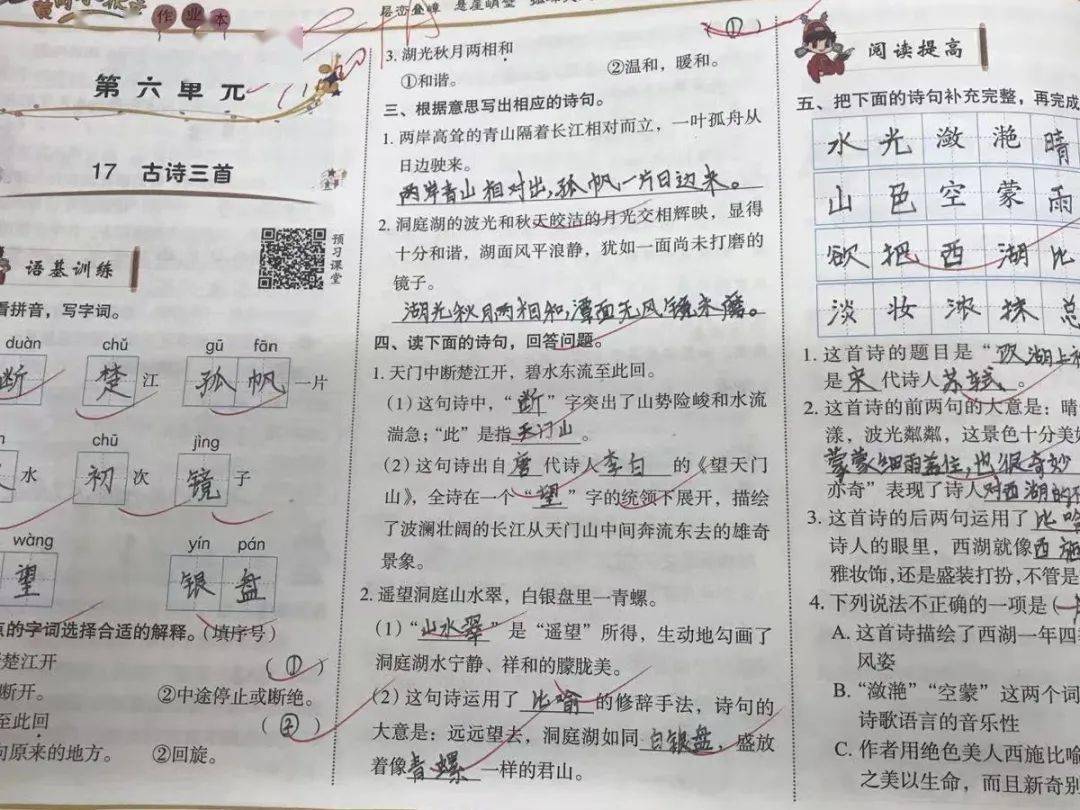 作业本
第六单元
17 古诗三首
预习课堂
语基训练
看拼音，写字词。
duàn chǔ gū fān
断 楚江 孤帆一片
chū jìng
水 初次 镜子
wàng yín pán
望 银盘
点的字词选择合适的解释。(填序号)
楚江开 (①)
断开。 ②中途停止或断绝。
至此回 (②)
向原来的地方。 ②回旋。
层峦叠嶂
(①)
3. 湖光秋月两相和
①和谐。 ②温和，暖和。
三、根据意思写出相应的诗句。
1. 两岸高耸的青山隔着长江相对而立，一叶孤舟从
日边驶来。
两岸青山相对出，孤帆一片日边来。
2. 洞庭湖的波光和秋天皎洁的月光交相辉映，显得
十分和谐，湖面风平浪静，犹如一面尚未打磨的
镜子。
湖光秋月两相和，潭面无风镜未磨。
四、读下面的诗句，回答问题。
1. 天门中断楚江开，碧水东流至此回。
(1) 这句诗中，“断”字突出了山势险峻和水流
湍急；“此”是指天门山。
(2) 这句诗出自唐代诗人李白的《望天门
山》，全诗在一个“望”字的统领下展开，描绘
了波澜壮阔的长江从天门山中间奔流东去的雄奇
景象。
2. 遥望洞庭山水翠，白银盘里一青螺。
(1) “山水翠”是“遥望”所得，生动地勾画了
洞庭湖水宁静、祥和的朦胧美。
(2) 这句诗运用了比喻的修辞手法，诗句的
大意是：远远望去，洞庭湖如同白银盘，盛放
着像青螺一样的君山。
阅读提高
五、把下面的诗句补充完整，再完成
水光潋滟晴
山色空蒙雨
欲把西湖比
淡妆浓抹总
1. 这首诗的题目是“
是宋代诗人苏轼。
2. 这首诗的前两句的大意是：晴
漾，波光粼粼，这景色十分美
蒙蒙细雨盖住，也很奇妙
亦奇”表现了诗人对西湖的
3. 这首诗的后两句运用了比喻
诗人的眼里，西湖就像西施
雅妆饰，还是盛装打扮，不管是
4. 下列说法不正确的一项是(
A. 这首诗描绘了西湖一年四
风姿
B. “潋滟”“空蒙”这两个词
诗歌语言的音乐性
C. 作者用绝色美人西施比喻
之美以生命，而且新奇别